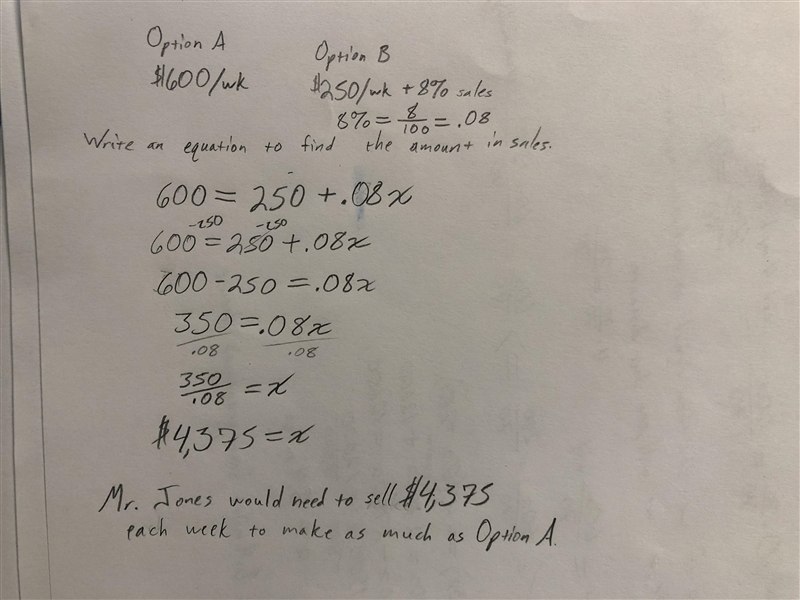 Option A
$600/wk
Option B
$250/wk + 8% sales
8% = 8/100 = .08
Write an equation to find the amount in sales.
600 = 250 + .08x
-250 -250
600 = 250 + .08x
600 - 250 = .08x
350 = .08x
.08 .08
350/.08 = x
$4,375 = x
Mr. Jones would need to sell $4,375
each week to make as much as Option A.